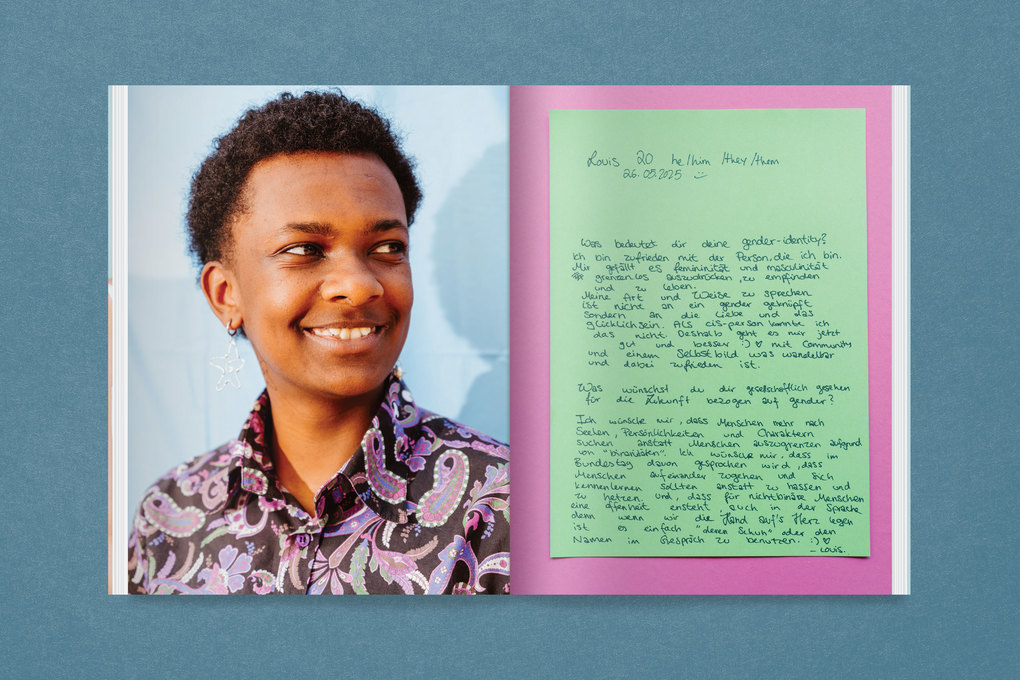 Louis 20 he/him /they/them
26.05.2025 :)
Was bedeutet dir deine gender-identity?
Ich bin zufrieden mit der Person, die ich bin.
Mir gefällt es femininität und masculinität
grenzenlos auszudrücken, zu empfinden
und zu leben.
Meine Art und Weise zu sprechen
ist nicht an ein gender geknüpft
sondern an die Liebe und das
glücklichsein. Als cis-person konnte ich
das nicht. Deshalb geht es mir jetzt
gut und besser :) ♡ mit Community
und einem Selbstbild was wandelbar
und dabei zufrieden ist.
Was wünschst du dir gesellschaftlich gesehen
für die Zukunft bezogen auf gender?
Ich wünsche mir, dass Menschen mehr nach
Seelen, Persönlichkeiten und Charaktern
suchen anstatt Menschen auszugrenzen aufgrund
von "binaritäten". Ich wünsche mir, dass im
Bundestag davon gesprochen wird, dass
Menschen aufeinander zugehen und sich
kennenlernen sollten anstatt zu hassen und
zu hetzen. und, dass für nichtbinäre Menschen
eine offenheit ensteht auch in der Sprache
denn wenn wir die Hand auf's Herz legen
ist es einfach "deren Schuh" oder den
Namen im Gespräch zu benutzen. :) ♡
– Louis.